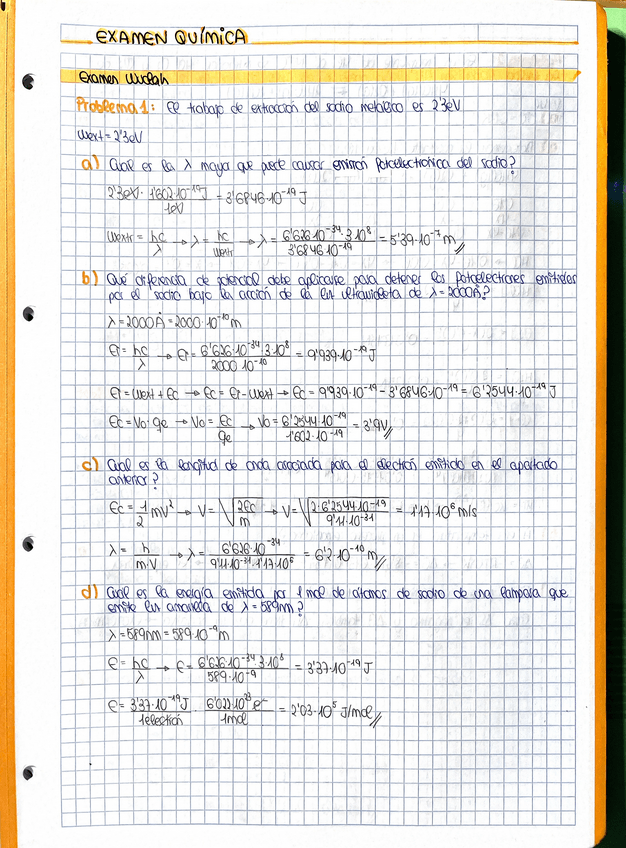 EXAMEN QUÍMICA
Examen Wuolah
Problema 1: El trabajo de extracción del sodio metálico es 2'3eV
Wext = 2'3eV
a) Cuál es la λ mayor que puede causar emisión fotoelectrónica del sodio?
2'3eV · 1'602·10⁻¹⁹J / 1eV = 3'6846·10⁻¹⁹ J
Wextr = hc/λ → λ = hc/Wextr → λ = 6'626·10⁻³⁴·3·10⁸ / 3'6846·10⁻¹⁹ = 5'39·10⁻⁷ m //
b) Qué diferencia de potencial debe aplicarse para detener los fotoelectrones emitidos
por el sodio bajo la acción de la luz ultravioleta de λ = 2000Å?
λ = 2000Å = 2000·10⁻¹⁰ m
Ei = hc/λ → Ei = 6'626·10⁻³⁴·3·10⁸ / 2000·10⁻¹⁰ = 9'939·10⁻¹⁹ J
Ei = Wext + Ec → Ec = Ei - Wext → Ec = 9'939·10⁻¹⁹ - 3'6846·10⁻¹⁹ = 6'2544·10⁻¹⁹ J
Ec = Vo · qe → Vo = Ec/qe → Vo = 6'2544·10⁻¹⁹ / 1'602·10⁻¹⁹ = 3'9V //
c) Cuál es la longitud de onda asociada para el electrón emitido en el apartado
anterior?
Ec = 1/2 mV² → V = √(2Ec/m) → V = √(2·6'2544·10⁻¹⁹ / 9'11·10⁻³¹) = 1'17·10⁶ m/s
λ = h/m·V → λ = 6'626·10⁻³⁴ / 9'11·10⁻³¹·1'17·10⁶ = 6'2·10⁻¹⁰ m //
d) Cuál es la energía emitida por 1 mol de átomos de sodio de una lámpara que
emite luz amarilla de λ = 589nm?
λ = 589nm = 589·10⁻⁹ m
E = hc/λ → E = 6'626·10⁻³⁴·3·10⁸ / 589·10⁻⁹ = 3'37·10⁻¹⁹ J
E = 3'37·10⁻¹⁹ J / 1electrón · 6'022·10²³ e⁻ / 1mol = 2'03·10⁵ J/mol //